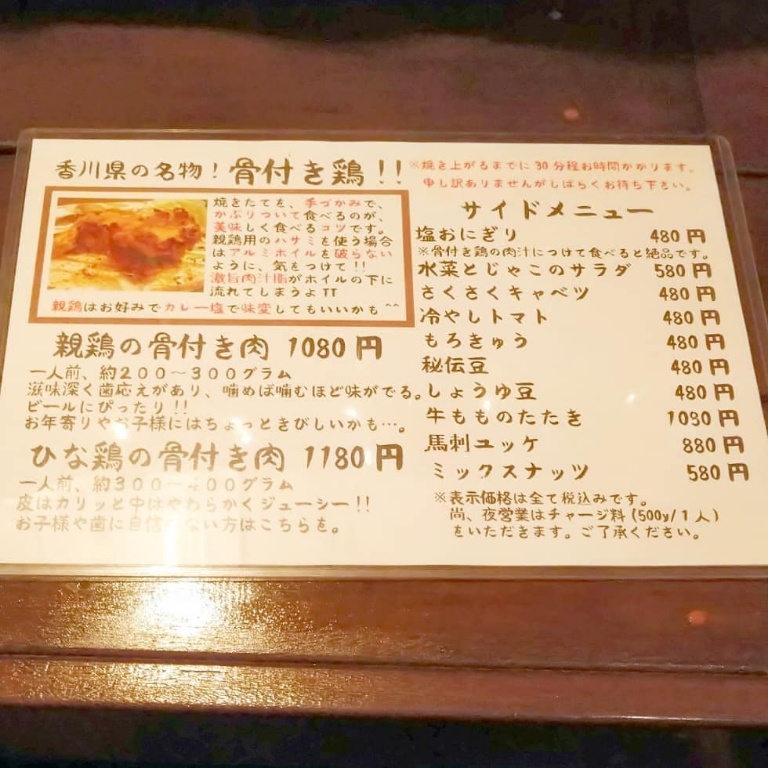 香川県の名物!骨付き鶏!!
焼きたてを、手づかみで、
かぶりついて食べるのが、
美味しく食べるコツです。
親鶏用のハサミを使う場合
はアルミホイルを破らない
ように、気をつけて!!
激旨肉汁脂がホイルの下に
流れてしまうよTT
親鶏はお好みでカレー塩で味変してもいいかも^^
親鶏の骨付き肉 1080円
一人前、約200〜300グラム
滋味深く歯応えがあり、噛めば噛むほど味がでる。
ビールにぴったり!!
お年寄りやお子様にはちょっときびしいかも…。
ひな鶏の骨付き肉 1180円
一人前、約300〜400グラム
皮はカリッと中はやわらかくジューシー!!
お子様や歯に自信がない方はこちらを。
※焼き上がるまでに30分程お時間かかります。
申し訳ありませんがしばらくお待ち下さい。
サイドメニュー
塩おにぎり 480円
※骨付き鶏の肉汁につけて食べると絶品です。
水菜とじゃこのサラダ 580円
さくさくキャベツ 480円
冷やしトマト 480円
もろきゅう 480円
秘伝豆 480円
しょうゆ豆 480円
牛もものたたき 1080円
馬刺ユッケ 880円
ミックスナッツ 580円
※表示価格は全て税込みです。
尚、夜営業はチャージ料(500y/1人)
をいただきます。ご了承ください。